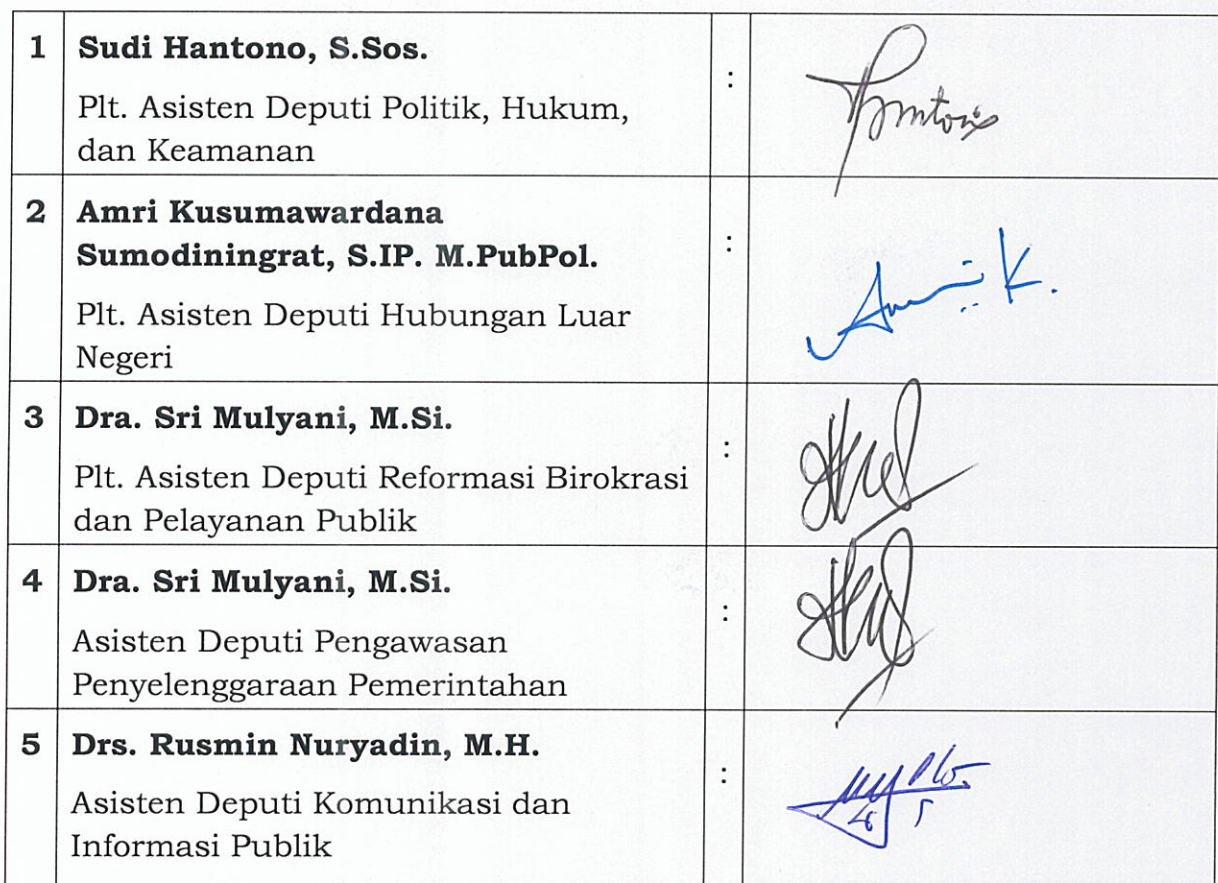 1 Sudi Hantono, S.Sos. :
Plt. Asisten Deputi Politik, Hukum,
dan Keamanan
2 Amri Kusumawardana
Sumodiningrat, S.IP. M.PubPol. :
Plt. Asisten Deputi Hubungan Luar
Negeri
3 Dra. Sri Mulyani, M.Si. :
Plt. Asisten Deputi Reformasi Birokrasi
dan Pelayanan Publik
4 Dra. Sri Mulyani, M.Si. :
Asisten Deputi Pengawasan
Penyelenggaraan Pemerintahan
5 Drs. Rusmin Nuryadin, M.H. :
Asisten Deputi Komunikasi dan
Informasi Publik